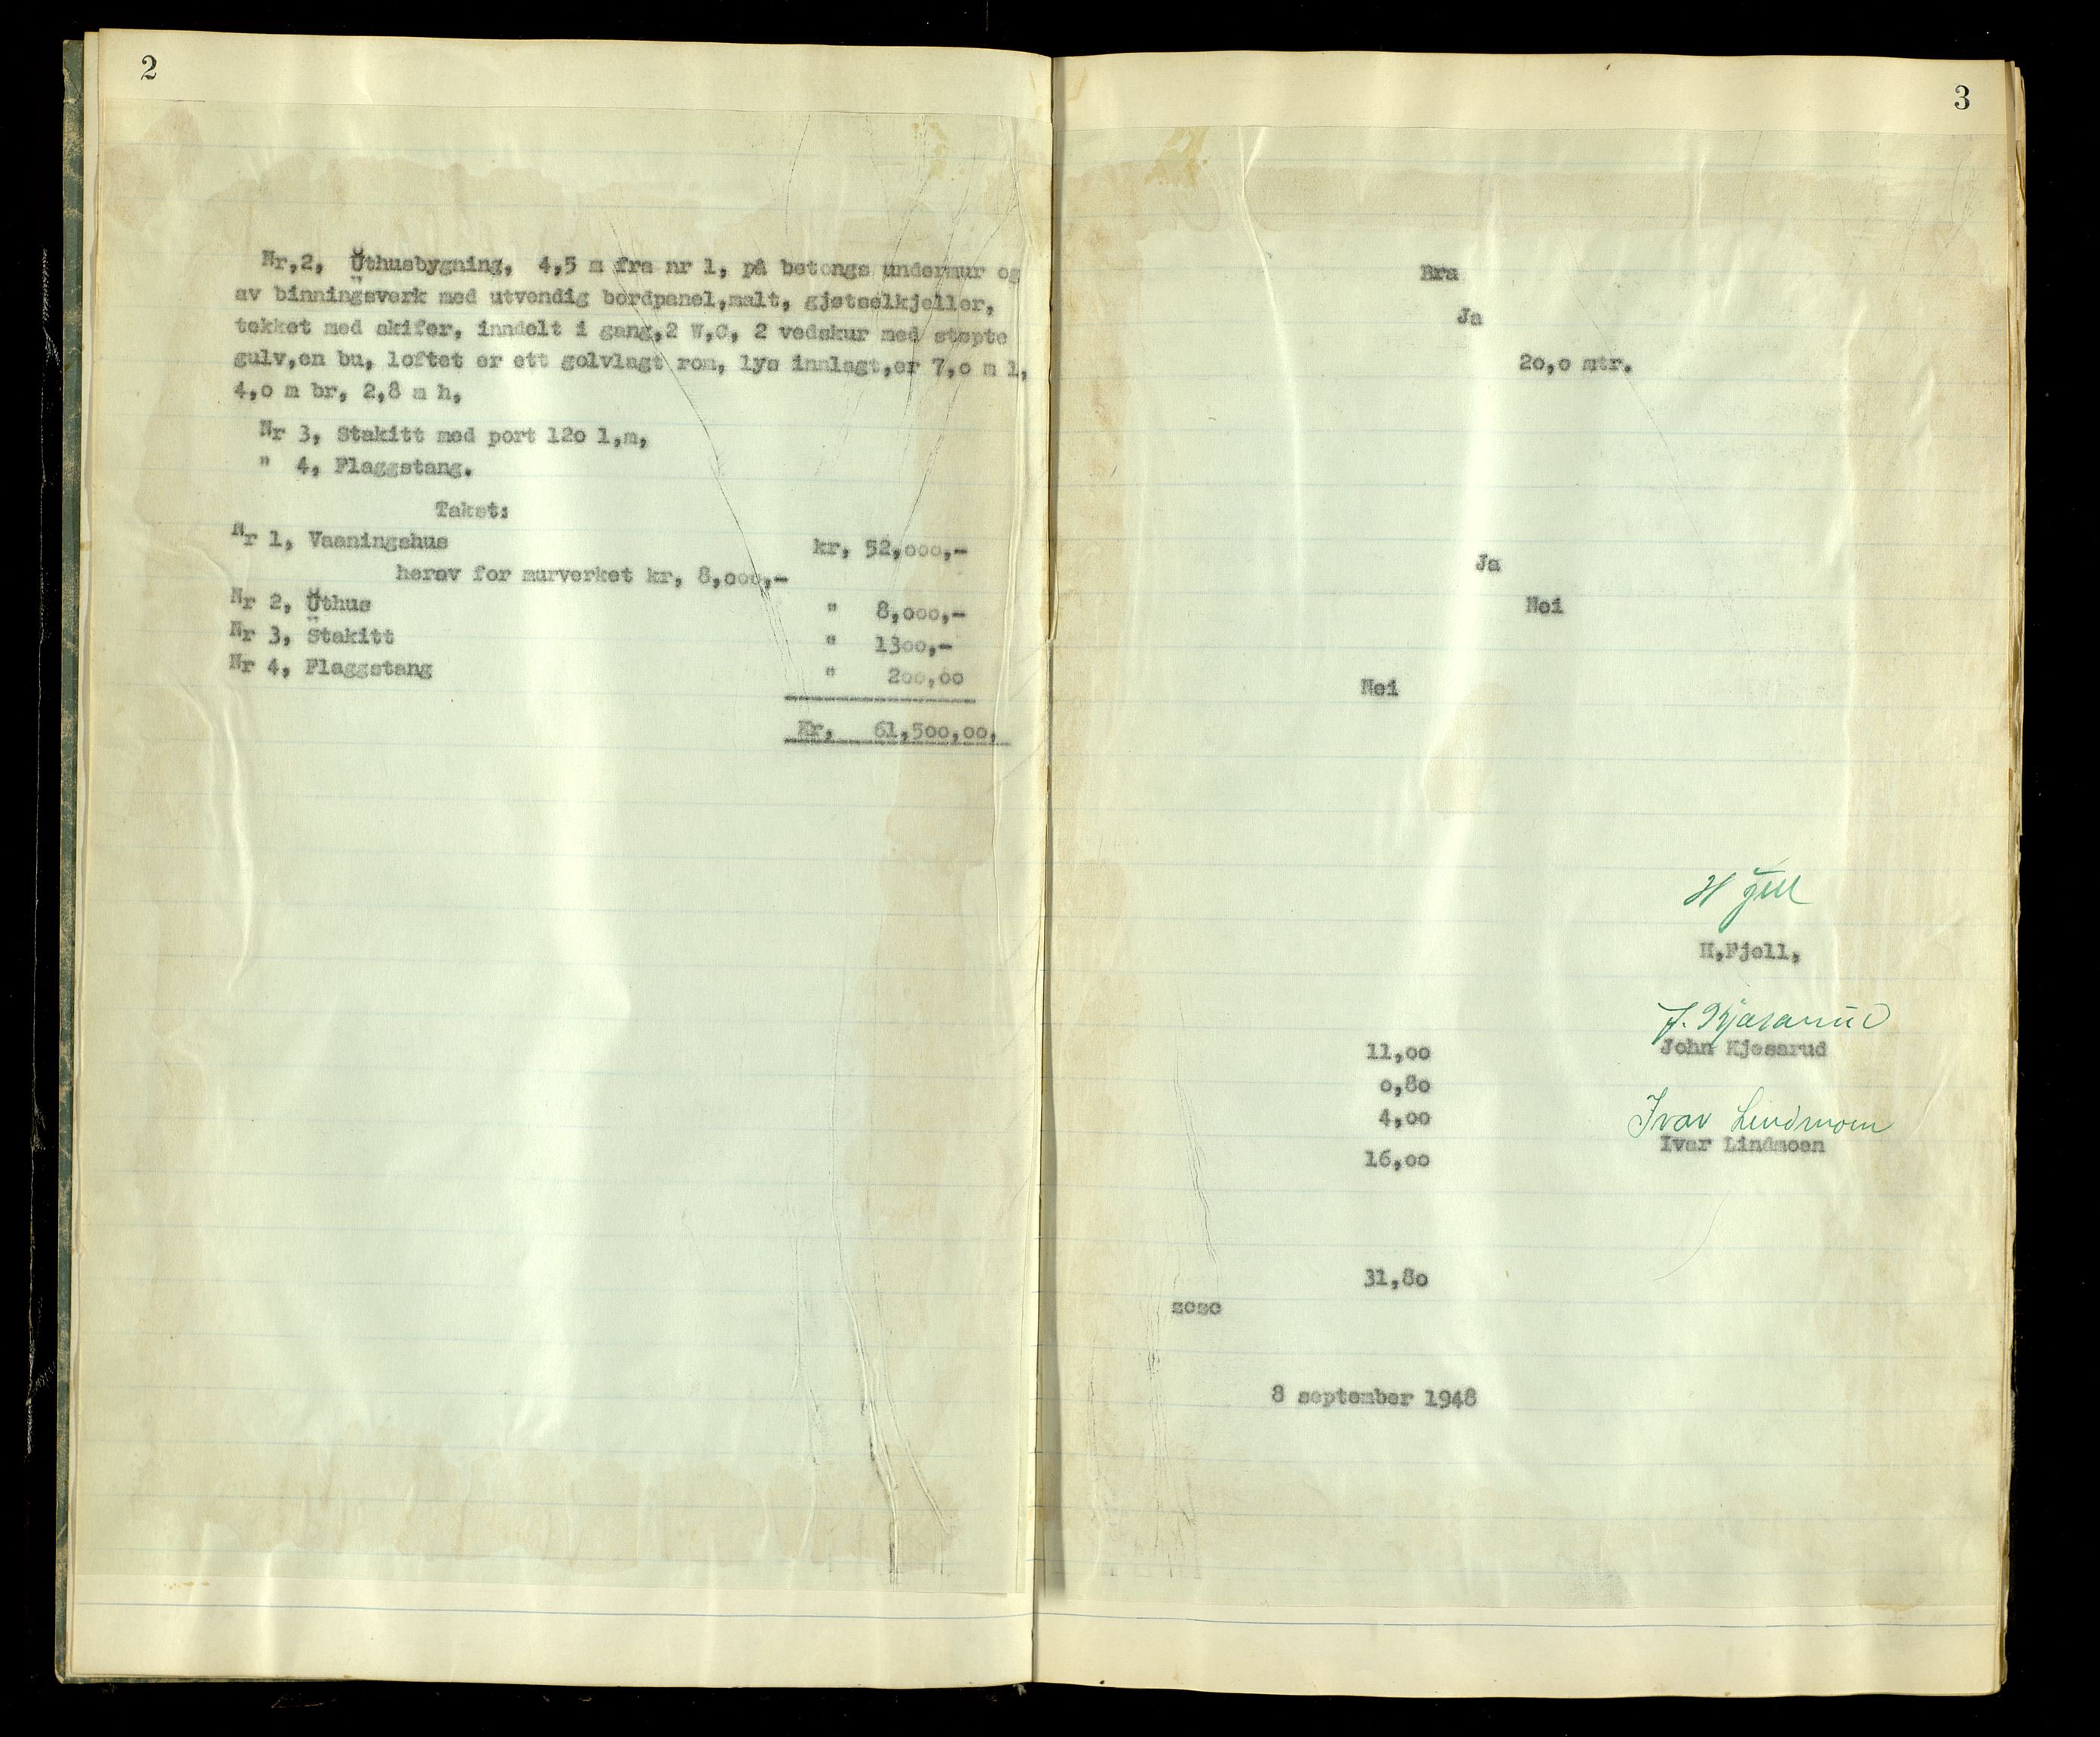 2
Nr,2, Uthusbygning, 4,5 m fra nr 1, på betongs undermur og
av binningsverk med utvendig bordpanel,malt, gjøtselkjeller,
tekket med skifer, inndelt i gang,2 W,C, 2 vedskur med støpte
gulv,en bu, loftet er ett golvlagt rom, lys innlagt,er 7,o m l,
4,o m br, 2,8 m h,
Nr 3, Stakitt med port 12o l,m,
" 4, Flaggstang.
Takst:
Nr 1, Vaaningshus kr, 52,ooo,-
herav for murverket kr, 8,ooo,-
Nr 2, Uthus " 8,ooo,-
Nr 3, Stakitt " 13oo,-
Nr 4, Flaggstang " 2oo,oo
Kr, 61,5oo,oo,
3
Bra
Ja
2o,o mtr.
Ja
Nei
Nei
H Fjell
H,Fjell,
J. Kjøsarud
11,oo John Kjøsarud
o,8o
4,oo Ivar Lindmoen
Ivar Lindmoen
16,oo
31,8o
8 september 1948